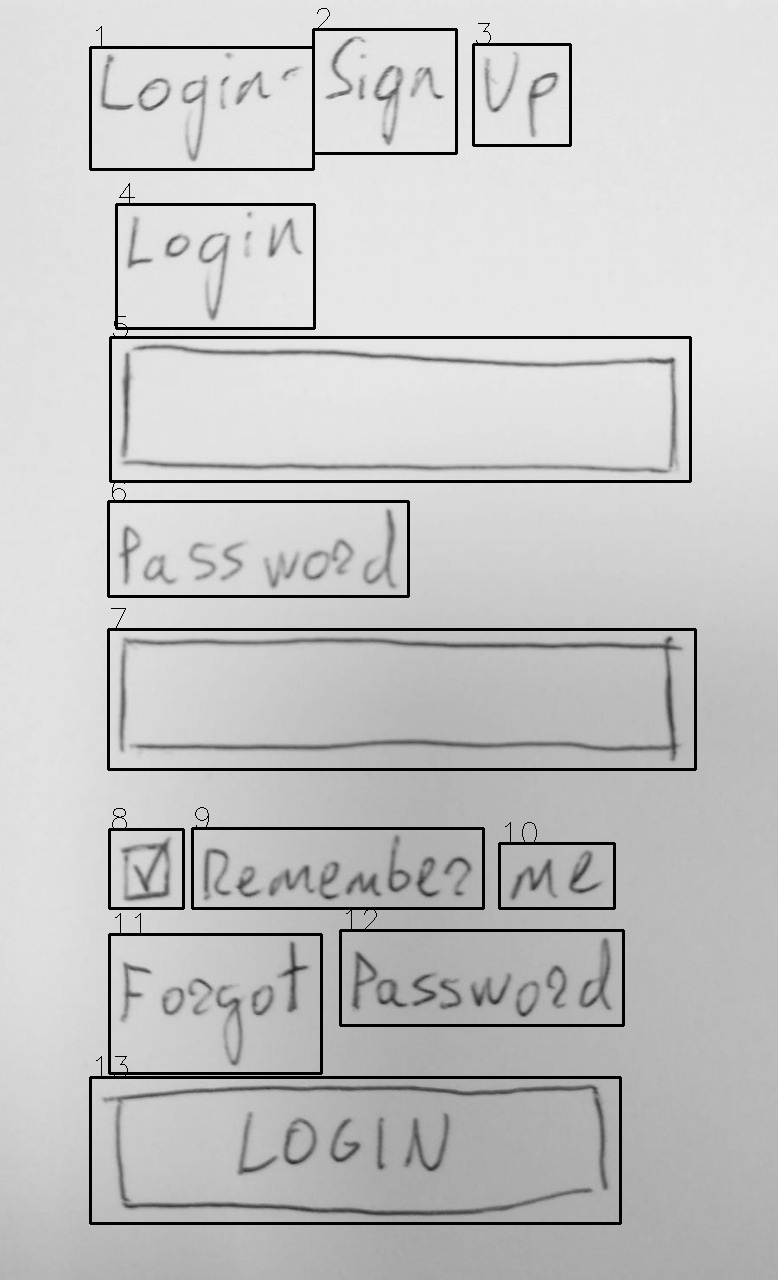 1 2 3
Login- Sign Up
4
Login
5
6
Password
7
8 9 10
Remember me
11 12
Forgot Password
13
LOGIN